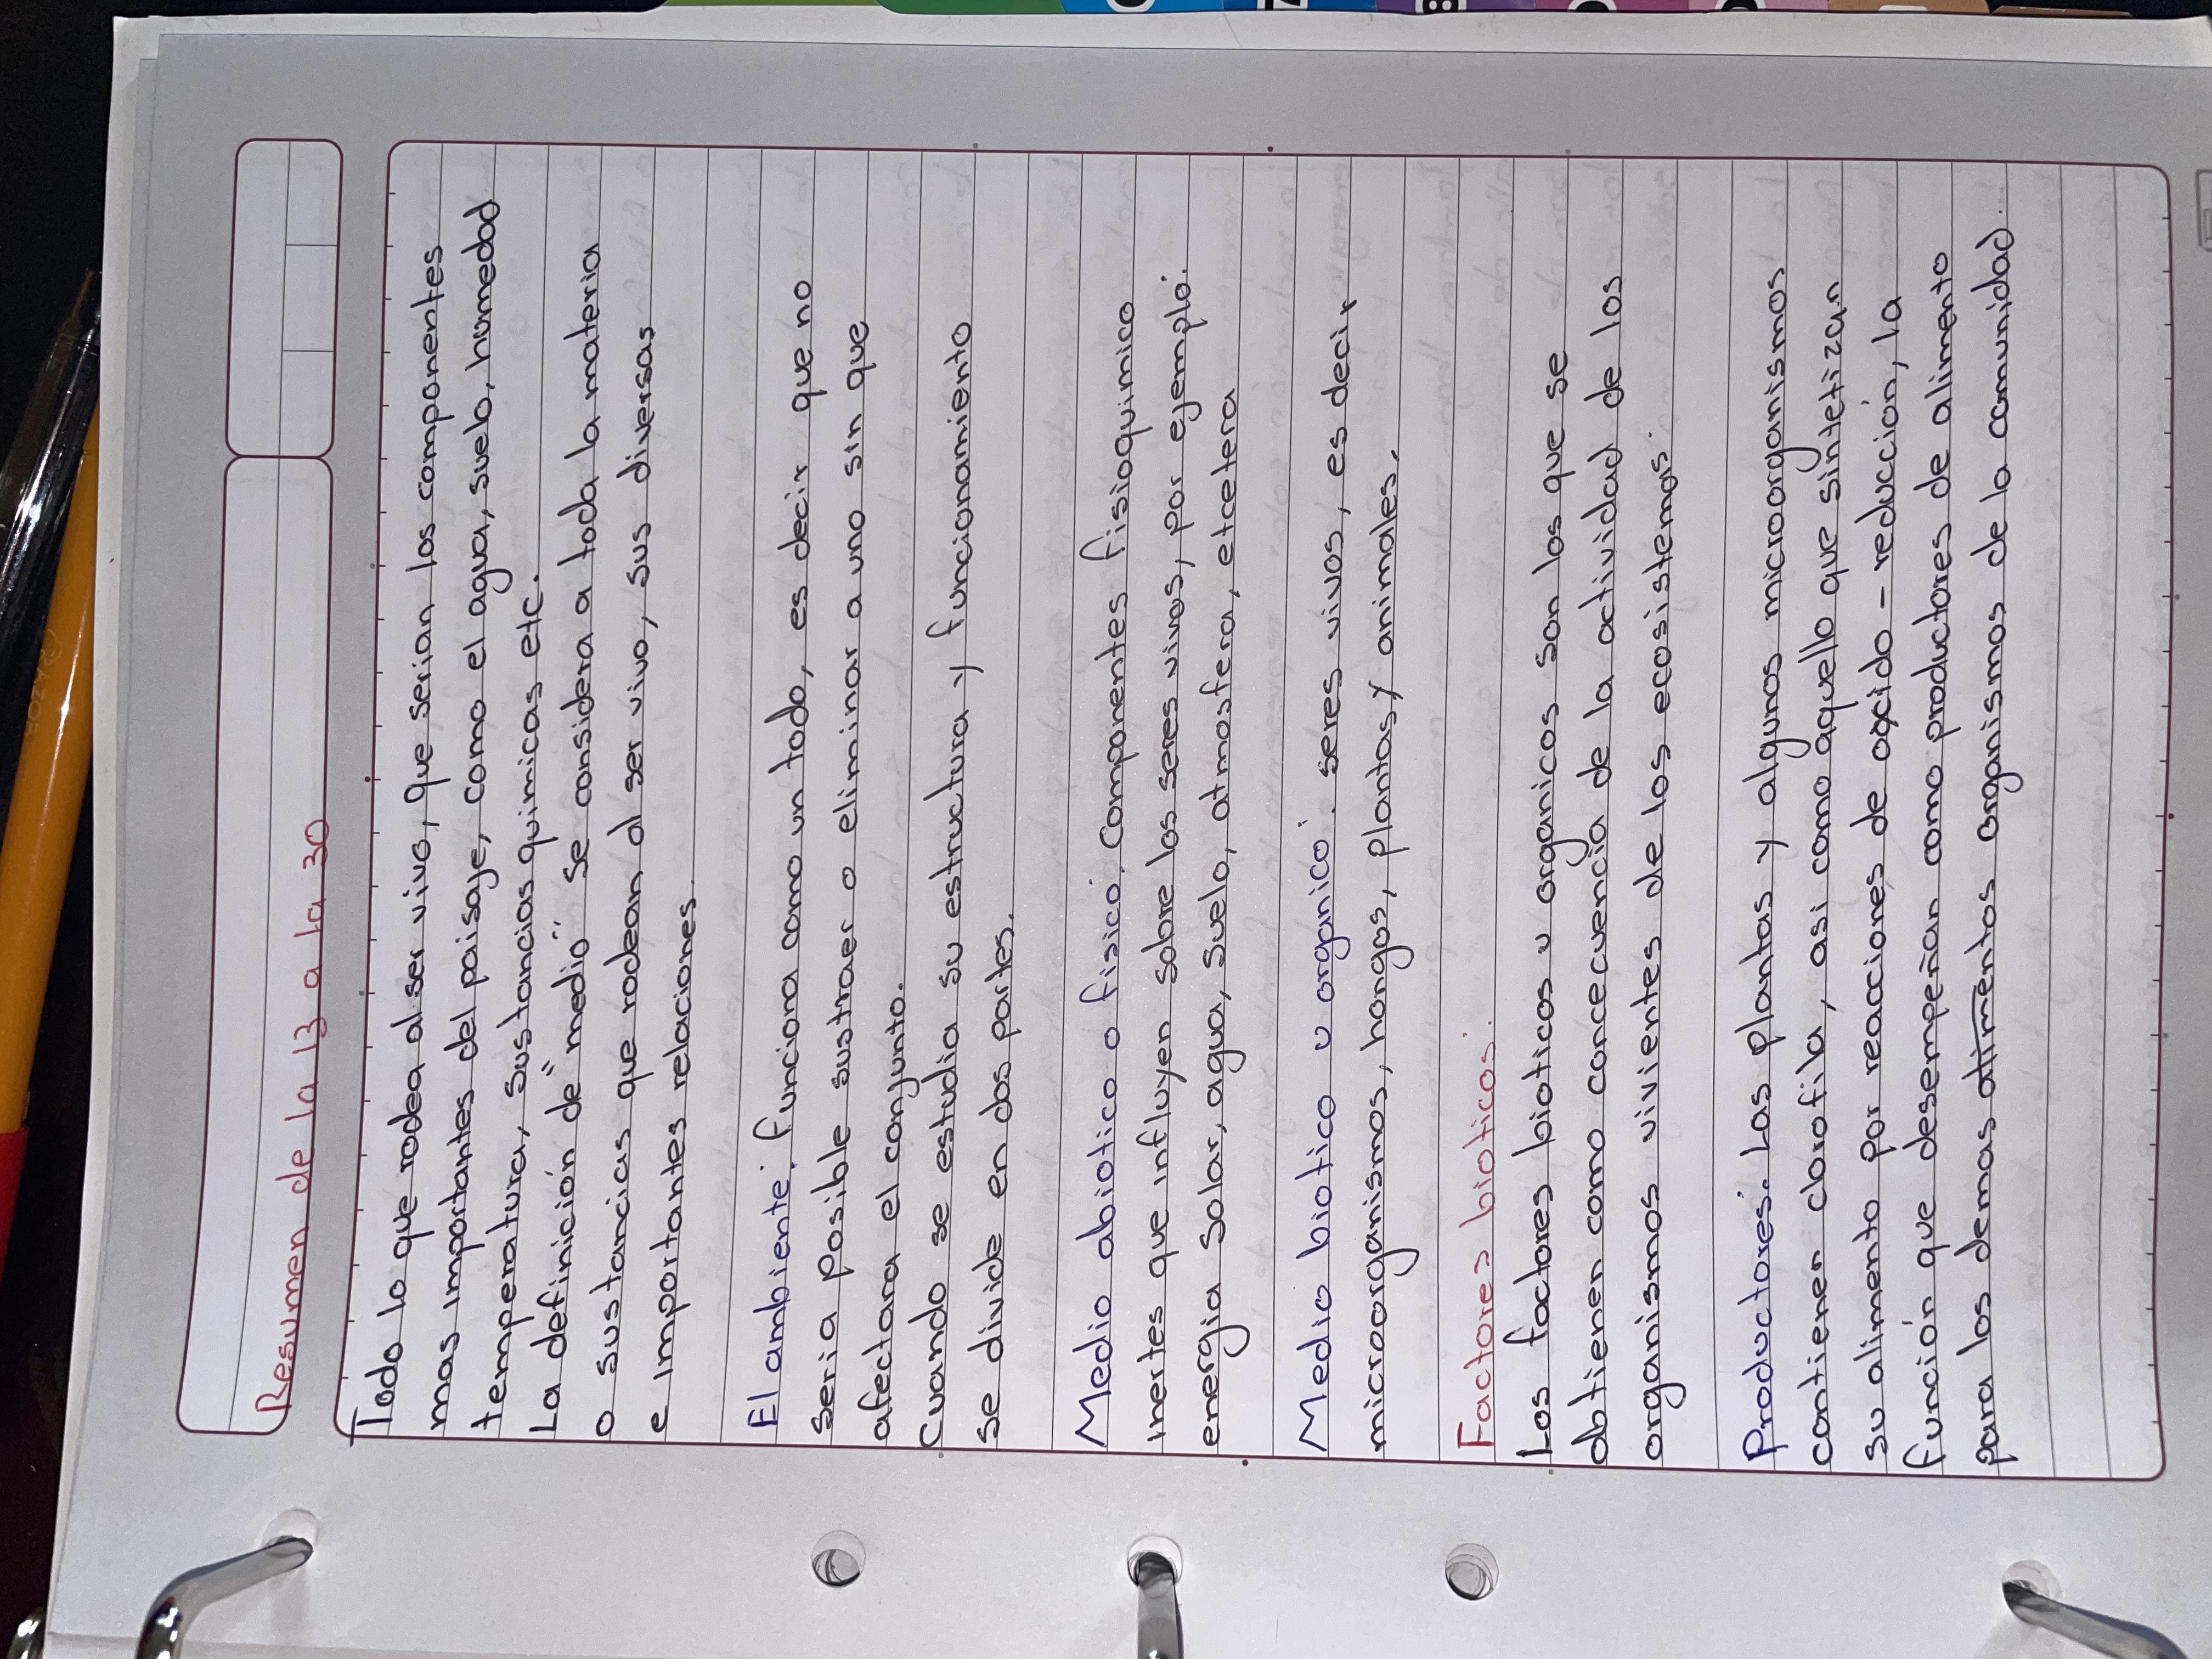 Resumen de la 13 a la 30
Todo lo que rodea al ser vivo, que serian los componentes
mas importantes del paisaje, como el agua, suelo, humedad
temperatura, sustancias quimicas etc.
La definición de "medio" se considera a toda la materia
o sustancias que rodean al ser vivo, sus diversas
e importantes relaciones.
El ambiente: funciona como un todo, es decir que no
seria posible sustraer o eliminar a uno sin que
afectara el conjunto.
Cuando se estudia su estructura y funcionamiento
se divide en dos partes.
Medio abiotico o fisico: Componentes fisioquimico
inertes que influyen sobre los seres vivos, por ejemplo:
energia solar, agua, suelo, atmosfera, etcetera
Medio biotico u organico: seres vivos, es decir
microorganismos, hongos, plantas y animales.
Factores bioticos:
Los factores bioticos u organicos son los que se
obtienen como concecuencia de la actividad de los
organismos vivientes de los ecosistemas.
Productores: Las plantas y algunos microorganismos
contienen clorofila, asi como aquello que sintetizan
su alimento por reacciones de oxido - reducción, la
función que desempeñan como productores de alimento
para los demas alimentos organismos de la comunidad.